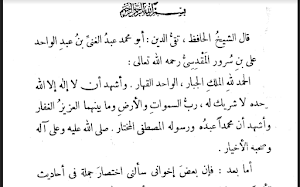 بسم الله الرحمن الرحيم
قال الشيخُ الحافظ ، تقيُّ الدين : أبو محمد عبدُ الغنىِّ بنُ عبدِ الواحد
على بن سُرورٍ المَقْدِسِىُّ رحمه الله تعالى :
الحمدُ لله المَلِكِ الجبار ، الواحد القهار . وأشهد أن لا إله إلا الله
وحده لا شريك له ، ربُّ السموات والأرضِ وما بينهما العزيزُ الغفار
وأشهد أن محمداً عبدُه ورسوله المصطفى المختار . صلى الله عليه وعلى آله
وصحبه الأخيار .
أما بعد : فإن بعضَ إخوانى سألنى اختصارَ جملة فى أحاديث